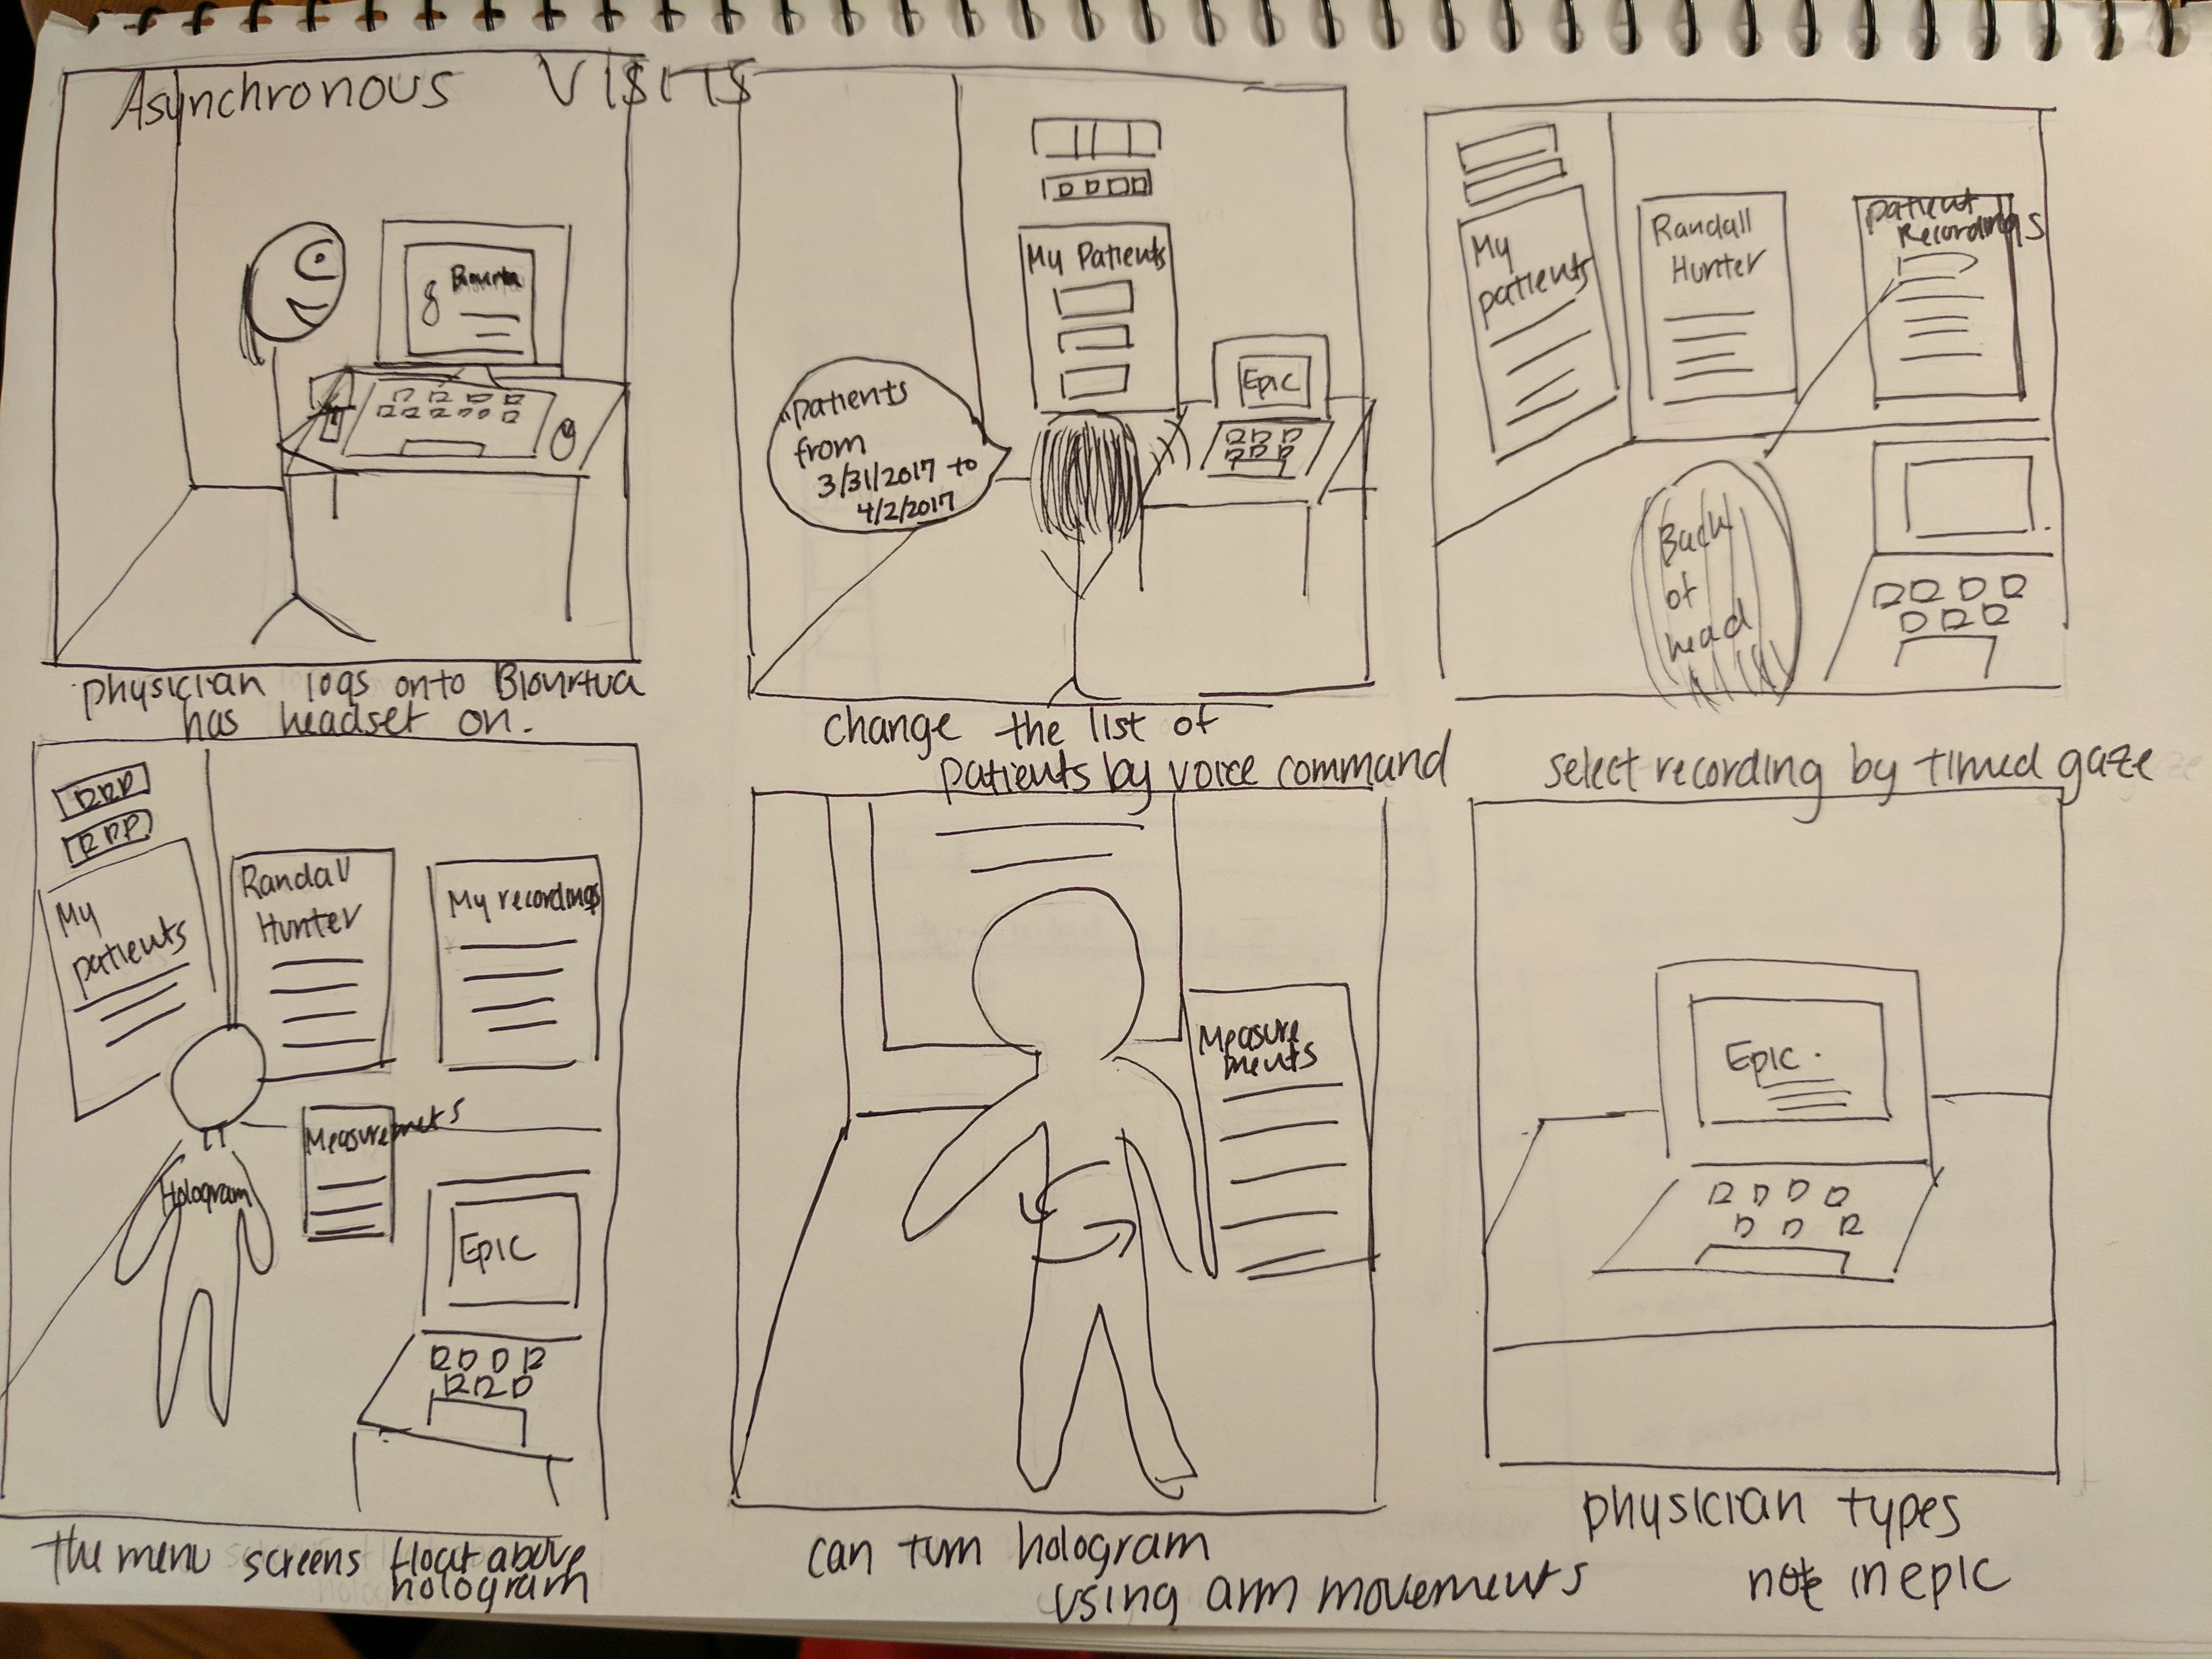 Asynchronous Visits
physician logs onto
has headset on.
My Patients
Epic
"patients
from
3/31/2017 to
4/2/2017
change the list of
patients by voice command
My
patients
Randall
Hunter
patient
Recordings
Back
of
head
select recording by timed gaze
My
patients
Randall
Hunter
My recordings
Measuremets
Hologram
Epic
the menu screens float above
hologram
Measure
ments
can turn hologram
using arm movements
Epic.
physician types
note in epic